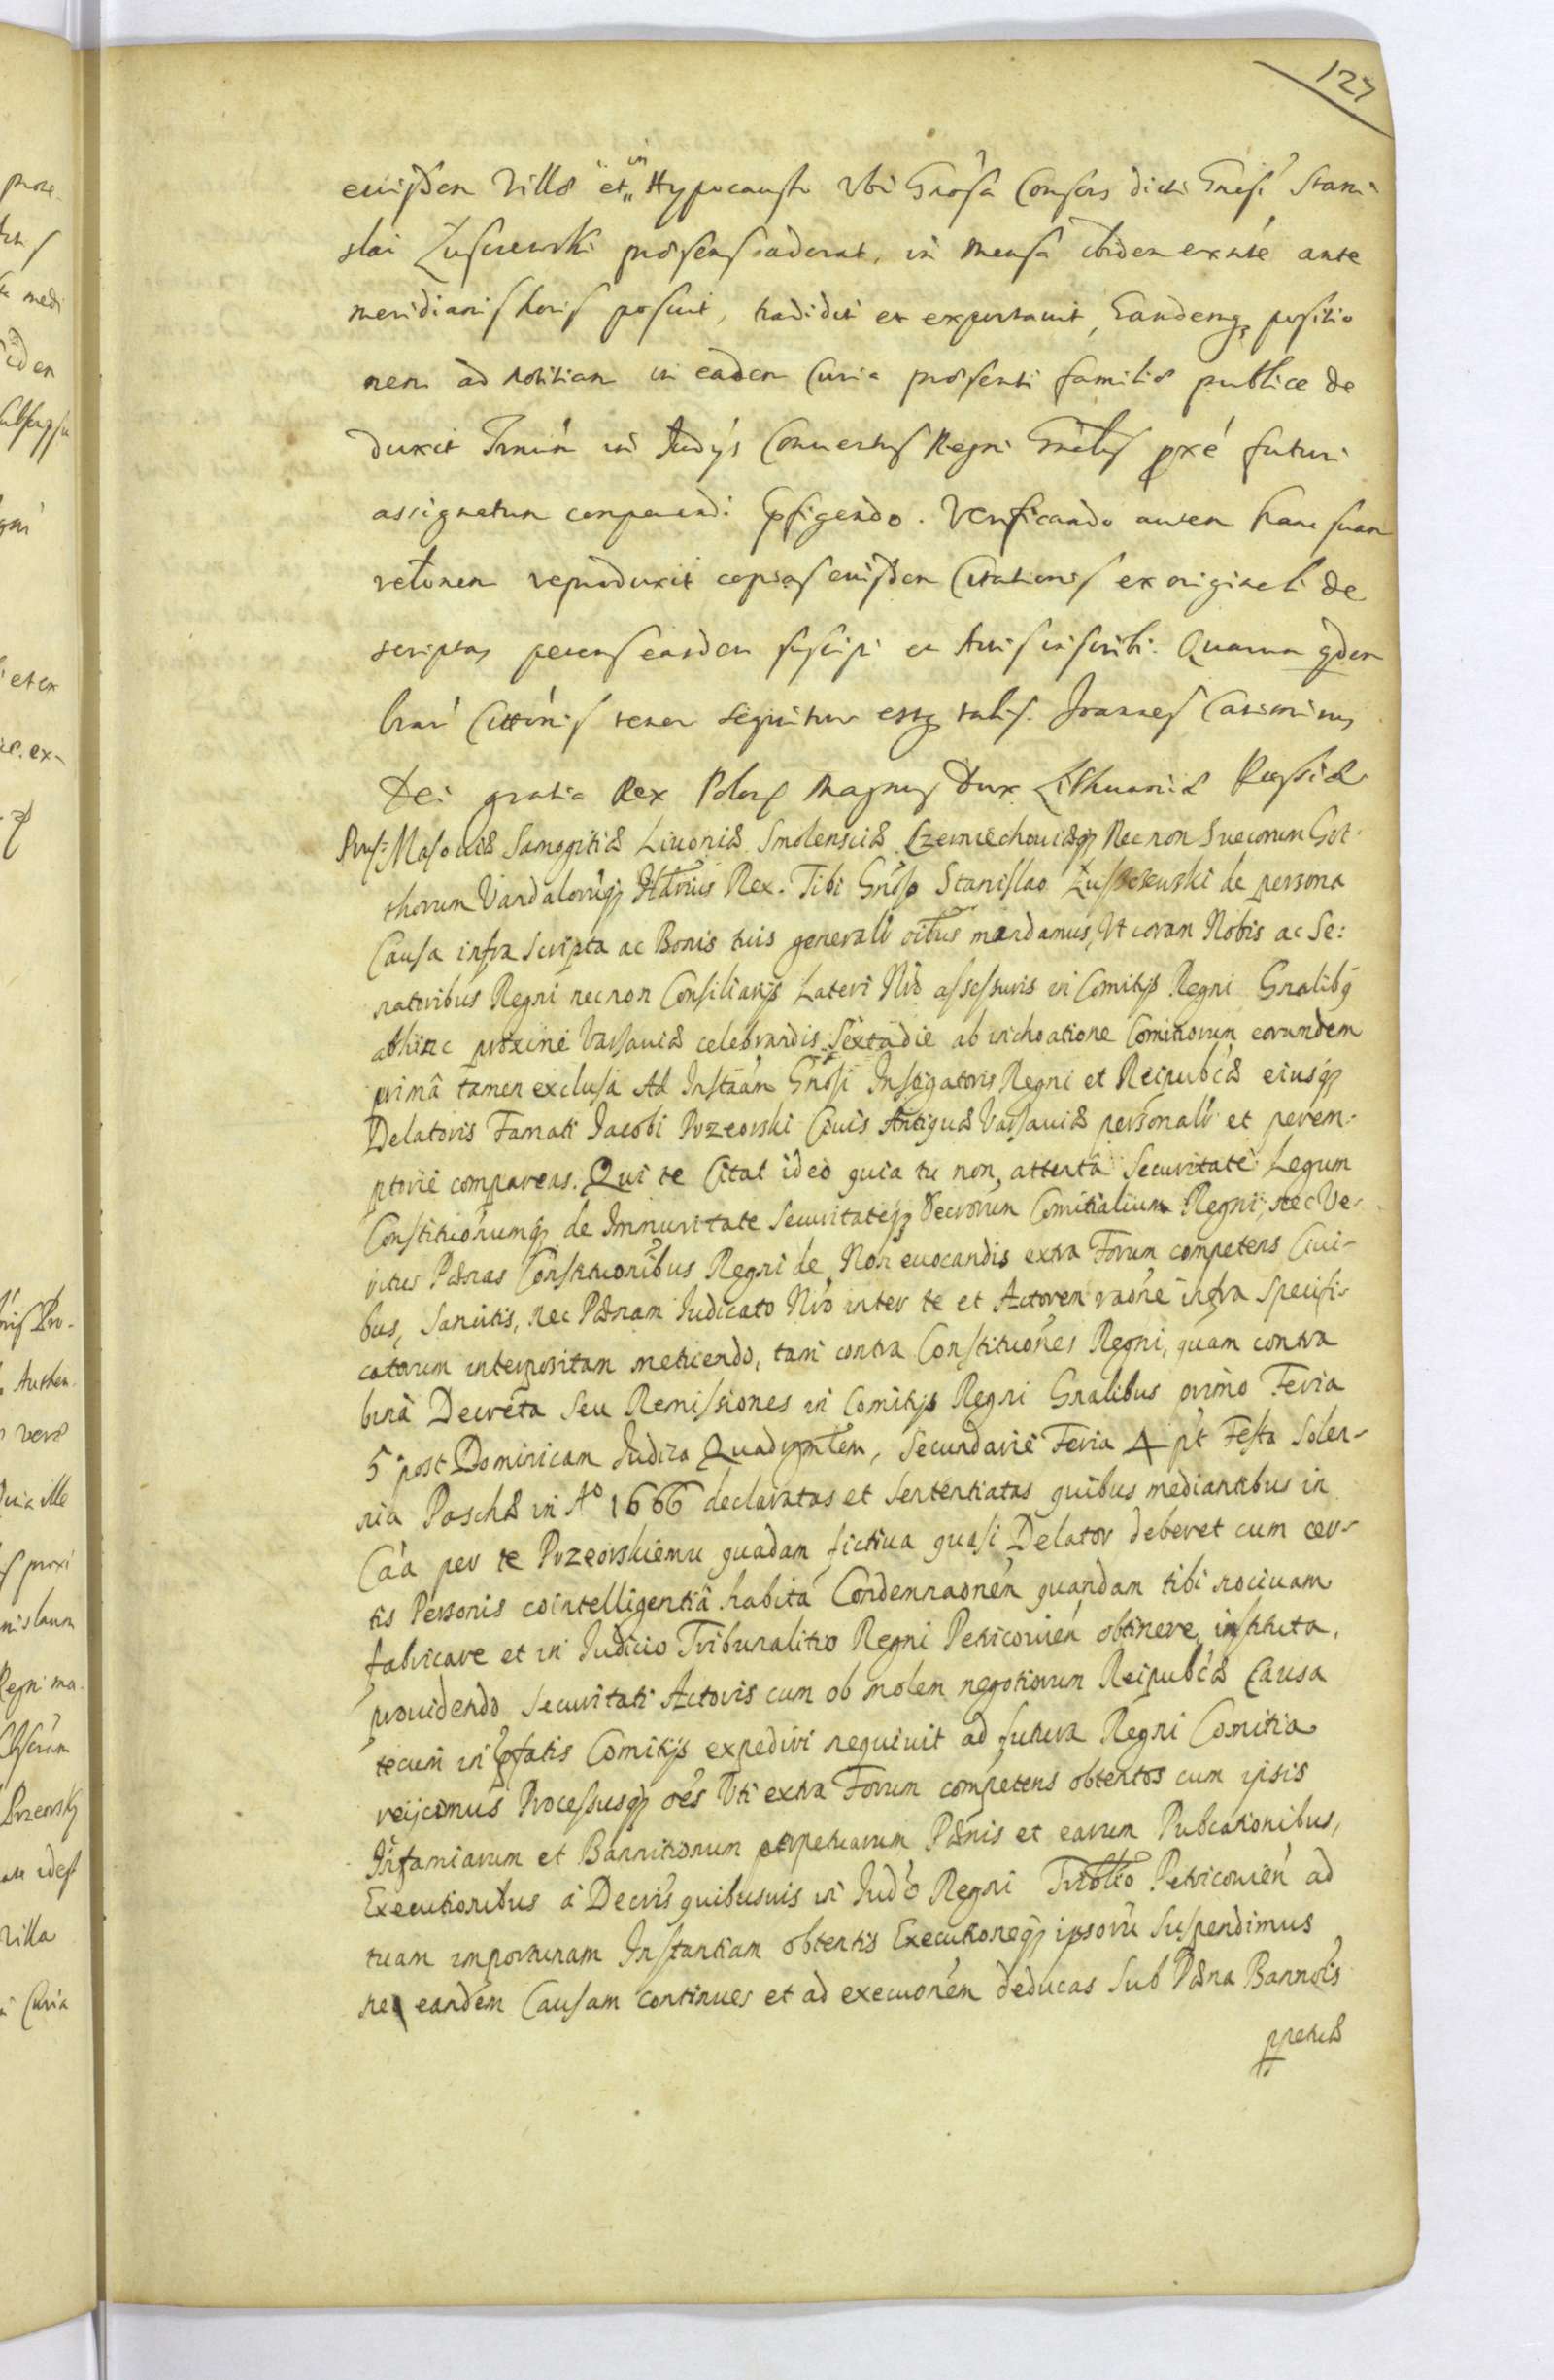 127
eiusdem Villæ et in Hypocausto Ubi Gnosa Consors dicti Gnosi Stani
slai Luszewski præsens aderat, in mensa ibidem exnte ante
meridianis horis posuit, tradidit et exportauit, Eandemq positio
nem ad notitiam in eadem Curia præsenti familiæ publice de
duxit Trnum in Iudijs Conuentus Regni Gnalis pxe futuri
assignatum comparendi Pfigendo. Verificando autem hanc suam
relonem reproduxit copias eiusdem Citationis ex originali de
scriptas petens easdem suscipi et Actis inscribi. Quarum qdem
lrarum Cittonis tenor sequitur estq talis. Joannes Casimirus
Dei gratia Rex Polon Magnus Dux Lithuaniæ Russiæ
Prus: Masouiæ Samogitiæ Liuoniæ Smolensciæ Czerniechouiæq Necnon Suecorum Got-
thorum Vandalorumq Hærius Rex. Tibi Gnoso Stanislao Luszczewski de persona
Causa infra scripta ac Bonis tuis generalr oibus mandamus, Vt coram Nobis ac Se:
natoribus Regni necnon Consiliarijs Lateri Nro assessuris in Comitijs Regni Gnalibq
abhinc proxime Varsauiæ celebrandis Sexta die ab inchoatione Comitiorum eorundem
primâ tamen exclusa Ad Instaam Gnosi Instigatoris Regni et Reipubcæ eiusq
Delatoris Famati Jacobi Przeorski Ciuis Antiquæ Varsauiæ personalr et perem-
ptorie compareas. Qui te Citat ideo quia tu non attentâ Securitate Legum
Constitucionumq de Immunitate Securitateq Decrorum Comitialium Regni, nec Ve-
ritus Pænas Constitucionibus Regni de Non euocandis extra Forum competens Ciui-
bus, Sancitis, nec Pænam Iudicato Nro inter te et Actorem raone infra Specifi-
catorum interpositam metuendo, tam contra Constituciones Regni, quam contra
bina Decreta Seu Remissiones in Comitijs Regni Gnalibus primo Feria
5 post Dominicam Iudica Quadrgmlem, Secundarie Feria 4 pt Festa Solen-
nia Paschæ in Aº 1666 declaratas et Sententiatas quibus mediantibus in
Caa per te Przeorskiemu quadam fictiua quasi Delator deberet cum cer-
tis Personis cointelligentiâ habitâ Condemnaonem quandam tibi nociuam
fabricare et in Iudicio Tribunalitio Regni Petricouien obtinere instituta,
prouidendo Securitati Actoris cum ob molem negotiorum Reipubcæ Causa
tecum in Pfatis Comitijs expediri nequiuit ad futura Regni Comitia
reijcimus Processusq oes Vti extra Forum competens obtentos cum ipsis
Infamiarum et Bannitionum perpetuarum Pænis et earum Pubcationibus,
Executionibus a Decris quibusuis in Iudo Regni Triblio Petricouien ad
tuam importunam Instantiam obtentis Executioneq ipsoru Suspendimus
ne eandem Causam continues et ad execuonem deducas Sub Pæna Bannois
ppetuæ